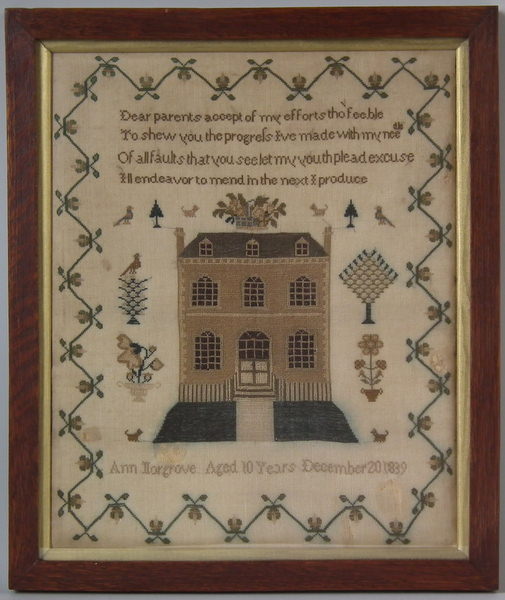 Dear parents accept of my efforts tho' feeble
To shew you the progreſs I've made with my needle
Of all faults that you see let my youth plead excuse
I'll endeavor to mend in the next I produce
Ann Horgrove Aged 10 Years December 20 1839